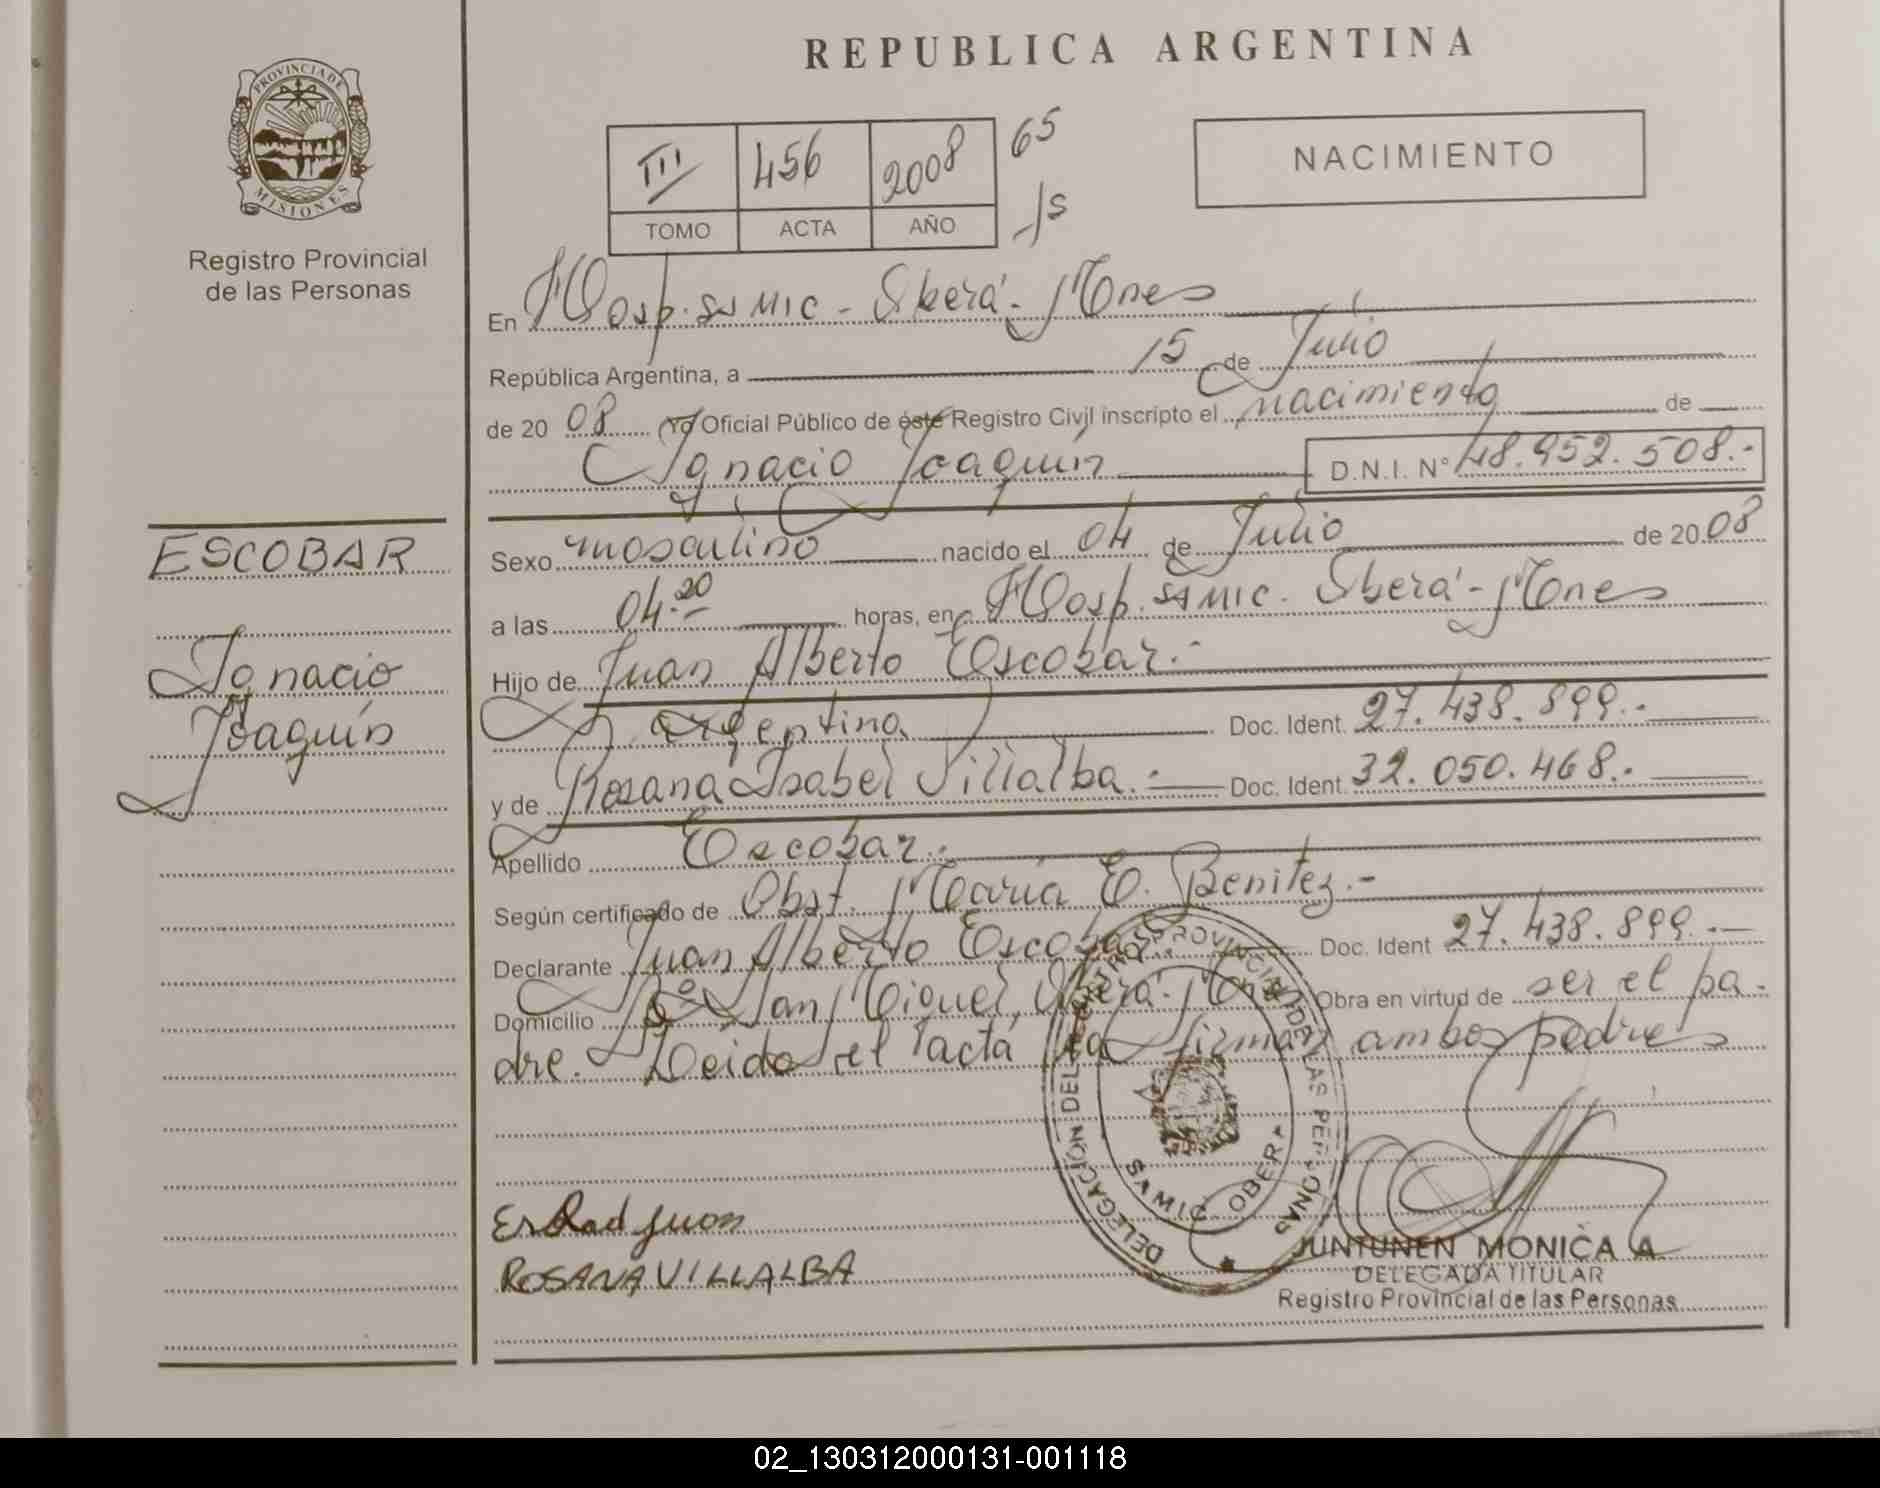 REPUBLICA ARGENTINA
PROVINCIA DE
MISIONES
Registro Provincial
de las Personas
III 456 2008 65
TOMO ACTA AÑO
NACIMIENTO
En Hosp. SAMIC - Oberá - Mnes
República Argentina, a 15 de Julio
de 20 08 Yo Oficial Público de éste Registro Civil inscripto el nacimiento de
Ignacio Joaquín D.N.I. N° 48.952.508.-
ESCOBAR
Ignacio
Joaquín
Sexo masculino nacido el 04 de Julio de 20 08
a las 04.20 horas, en Hosp. SAMIC. Oberá - Mnes
Hijo de Juan Alberto Escobar.-
argentina Doc. Ident. 27.438.899.-
y de Rosana Isabel Villalba.- Doc. Ident. 32.050.468.-
Apellido Escobar.-
Según certificado de Obst. María E. Benitez.-
Declarante Juan Alberto Escobar Doc. Ident 27.438.899.-
Domicilio Bº San Miguel, Oberá - Mnes Obra en virtud de ser el pa-
dre. Leida el acta la firman ambos padres
DELEGACIÓN DEL REGISTRO PROVINCIAL DE LAS PERSONAS
SAMIC OBERA
Juan
ROSANA VILLALBA
JUNTUNEN MONICA A
DELEGADA TITULAR
Registro Provincial de las Personas
02_130312000131-001118